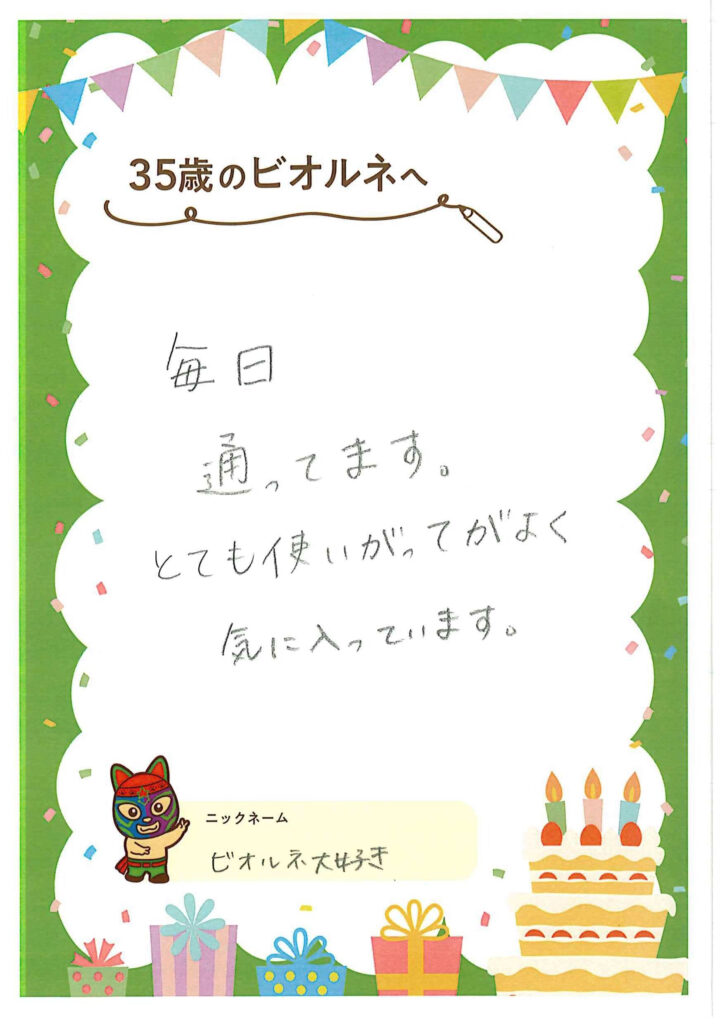 35歳のビオルネへ
毎日
通ってます。
とても使いがってがよく
気に入っています。
ニックネーム
ビオルネ大好き